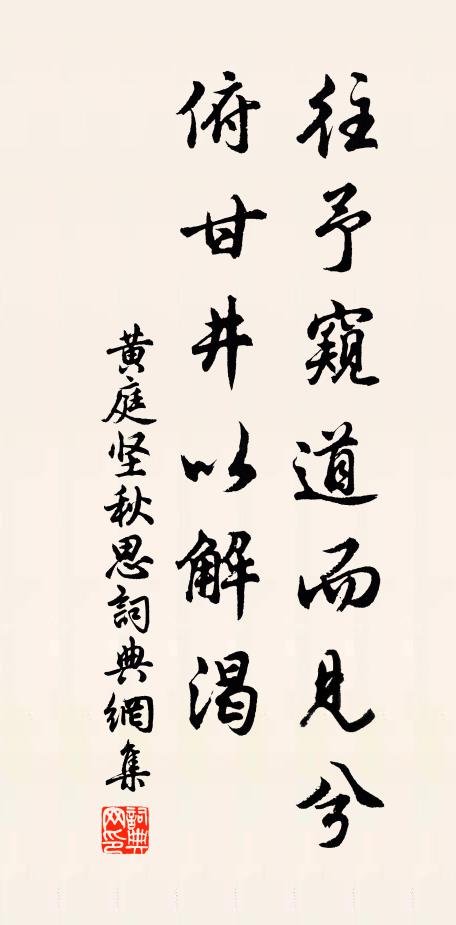 往予窥道而见兮
俯甘井以解渴
黄庭坚秋思詞典網集
詞典网印